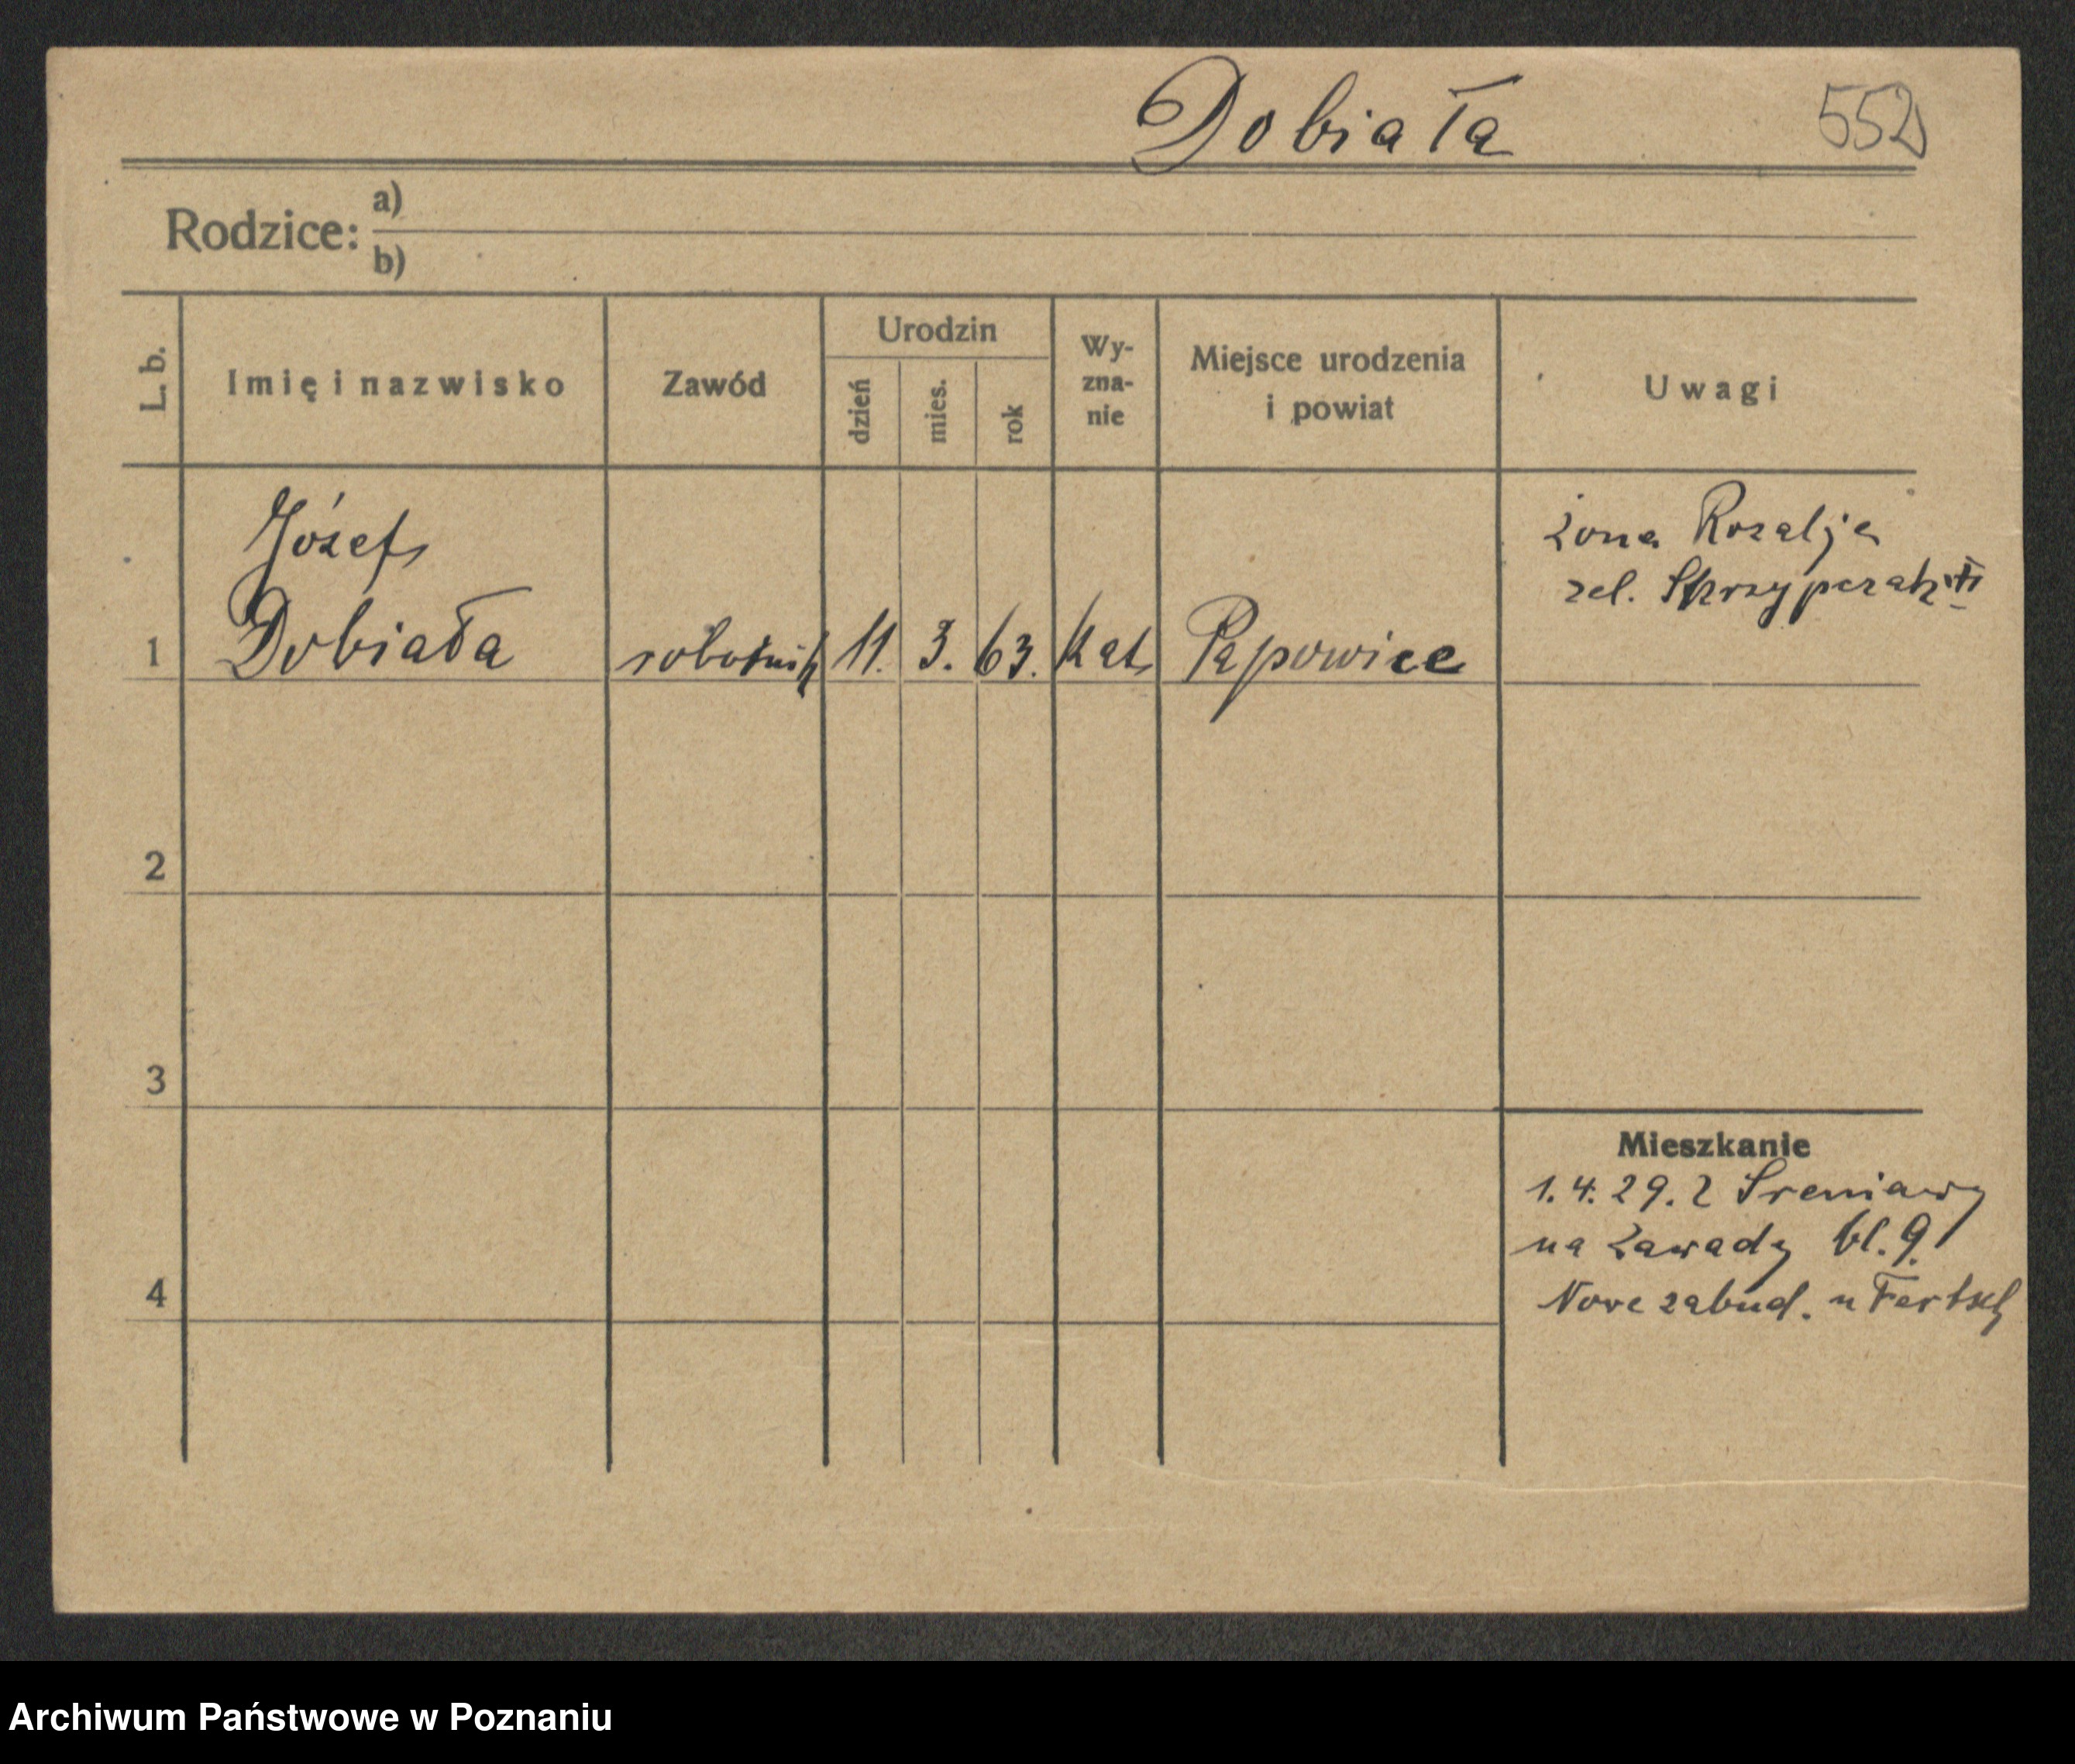 Dobiała 552
Rodzice: a)
b)
L. b. Imię i nazwisko Zawód Urodzin dzień mies. rok Wy-zna-nie Miejsce urodzenia i powiat Uwagi
Józef żona Rozalja
zel.
1 Dobiała robotnik 11. 3. 63. Kat Papowice
2
3
Mieszkanie
1.4.29. z Sreniawy
na Zawady bl. 9.
4 Nove zabud. u
Archiwum Państwowe w Poznaniu